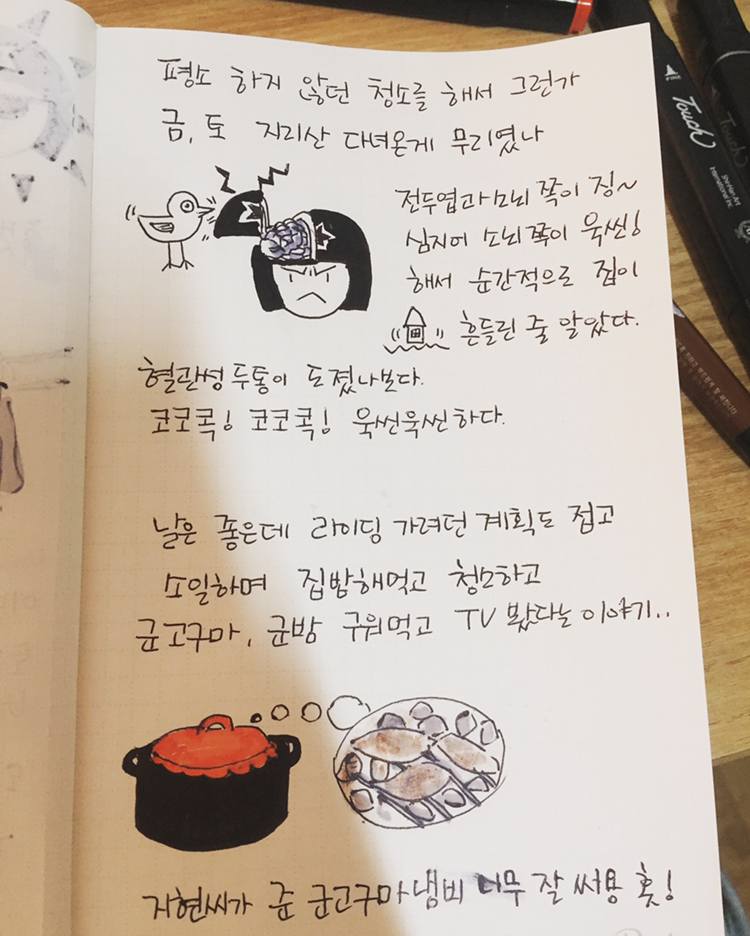 평소 하지 않던 청소를 해서 그런가
금, 토 지리산 다녀온게 무리였나
전두엽과 소뇌 쪽이 징~
심지어 소뇌 쪽이 욱씬!
해서 순간적으로 집이
흔들린 줄 알았다.
혈관성 두통이 도졌나보다.
코코콕! 코코콕! 욱씬욱씬하다.
날은 좋은데 라이딩 가려던 계획도 접고
소일하며 집밥해먹고 청소하고
군고구마, 군밤 구워먹고 TV 봤다는 이야기..
지현씨가 준 군고구마냄비 너무 잘 써용 훗!
Touch
ShinHan Art
International Inc.
FINE
Touch